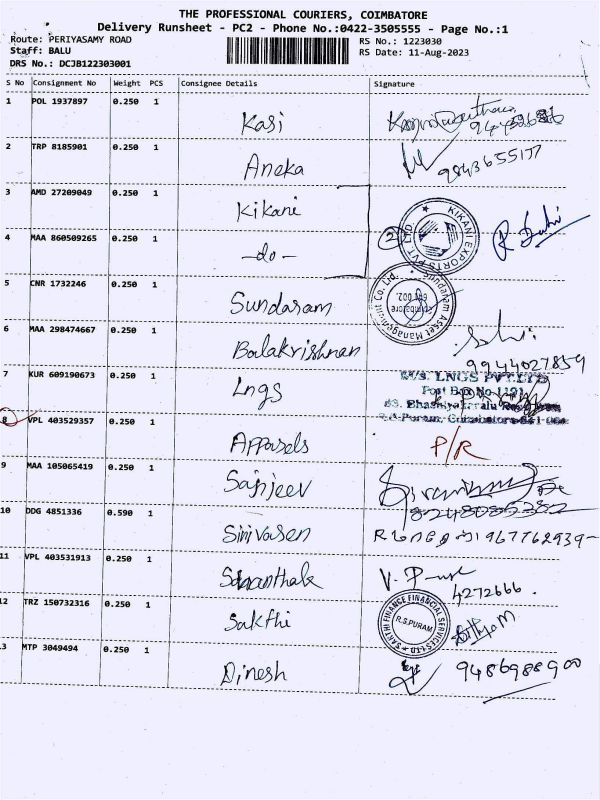 THE PROFESSIONAL COURIERS, COIMBATORE
Delivery Runsheet - PC2 - Phone No.:0422-3505555 - Page No.:1
Route: PERIYASAMY ROAD RS No.: 1223030
Staff: BALU RS Date: 11-Aug-2023
DRS No.: DCJB122303001
S No Consignment No Weight PCS Consignee Details Signature
1 POL 1937897 0.250 1 Kasi
2 TRP 8185901 0.250 1 Aneka
3 AMD 27209049 0.250 1 Kikani
KIKANI EXPORTS PVT LTD
4 MAA 860509265 0.250 1 -do- 2
5 CNR 1732246 0.250 1 Sundaram
Sundaram Asset Management Co. Ltd.
Coimbatore 641 002
6 MAA 298474667 0.250 1 Balakrishnan
9944027859
7 KUR 609190673 0.250 1 Lngs
M/S. LNGS PVT LTD
Post Box No-1121
8 VPL 403529357 0.250 1 Apparels P/R
9 MAA 105065419 0.250 1 Sanjeev
10 DDG 4851336 0.590 1 Srinivasen
11 VPL 403531913 0.250 1
V.
4272666.
12 TRZ 150732316 0.250 1 Sakthi
SAKTHI FINANCE FINANCIAL SERVICES LTD
R.S.PURAM
13 MTP 3049494 0.250 1 Dinesh 9486988900